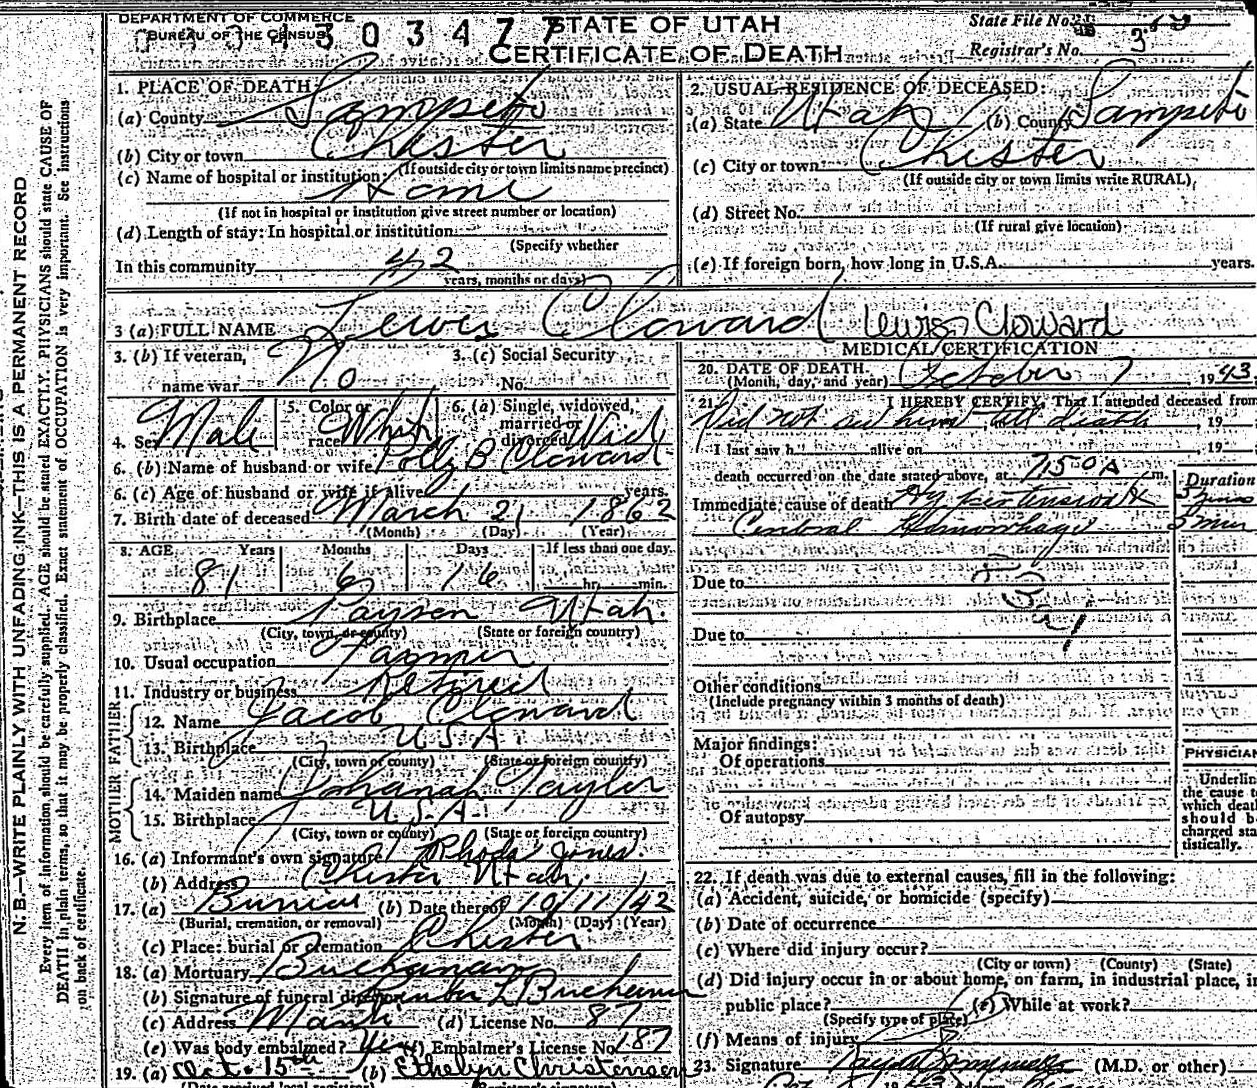 DEPARTMENT OF COMMERCE
BUREAU OF THE CENSUS
3 0 3 4 7 7
STATE OF UTAH
CERTIFICATE OF DEATH
State File No.
Registrar's No. 3
N. B.—WRITE PLAINLY WITH UNFADING INK—THIS IS A PERMANENT RECORD
Every item of information should be carefully supplied. AGE should be stated EXACTLY. PHYSICIANS should state CAUSE OF
DEATH in plain terms, so that it may be properly classified. Exact statement of OCCUPATION is very important. See instructions
on back of certificate.
1. PLACE OF DEATH:
(a) County Sanpete
(b) City or town Chester
(If outside city or town limits name precinct)
(c) Name of hospital or institution:
Home
(If not in hospital or institution give street number or location)
(d) Length of stay: In hospital or institution
(Specify whether
In this community 42
years, months or days)
2. USUAL RESIDENCE OF DECEASED:
(a) State Utah (b) County Sanpete
(c) City or town Chester
(If outside city or town limits write RURAL)
(d) Street No.
(If rural give location)
(e) If foreign born, how long in U.S.A. years.
3 (a) FULL NAME Lewis Cloward Lewis Cloward
3. (b) If veteran,
name war No
3. (c) Social Security
No.
4. Sex Male
5. Color or
race White
6. (a) Single, widowed,
married or
divorced Wid
6. (b) Name of husband or wife Polly B Cloward
6. (c) Age of husband or wife if alive years.
7. Birth date of deceased March 21 1862
(Month) (Day) (Year)
8. AGE Years Months Days If less than one day.
81 6 16 hr. min.
9. Birthplace Payson Utah.
(City, town, or county) (State or foreign country)
10. Usual occupation Farmer
11. Industry or business Retired
FATHER
12. Name Jacob Cloward
13. Birthplace U.S.A.
(City, town or county) (State or foreign country)
MOTHER
14. Maiden name Johanah Taylor
15. Birthplace U.S.A.
(City, town or county) (State or foreign country)
16. (a) Informant's own signature Rhoda Jones.
(b) Address Chester Utah.
17. (a) Burial (b) Date thereof 10/11/42
(Burial, cremation, or removal) (Month) (Day) (Year)
(c) Place: burial or cremation Chester
18. (a) Mortuary Buchanan
(b) Signature of funeral director L Buchanan
(c) Address Manti (d) License No. 87
(e) Was body embalmed? Yes (f) Embalmer's License No. 187
19. (a) Oct. 15th (b) Ethelyn Christensen
(Date received local registrar) (Registrar's signature)
MEDICAL CERTIFICATION
20. DATE OF DEATH.
(Month, day, and year) October 7, 1943.
21. I HEREBY CERTIFY, That I attended deceased from
Did not see him till death, 19
I last saw h alive on , 19
death occurred on the date stated above, at 7:50 A m.
Duration
Immediate cause of death Hypertension &
Cerebral Hemorrhage 5 min
Due to
Due to
Other conditions
(Include pregnancy within 3 months of death)
Major findings:
Of operations
Of autopsy
PHYSICIAN
Underlin
the cause t
which deat
should b
charged sta
tistically.
22. If death was due to external causes, fill in the following:
(a) Accident, suicide, or homicide (specify)
(b) Date of occurrence
(c) Where did injury occur?
(City or town) (County) (State)
(d) Did injury occur in or about home, on farm, in industrial place, in
public place? (e) While at work?
(Specify type of place)
(f) Means of injury
23. Signature (M.D. or other)